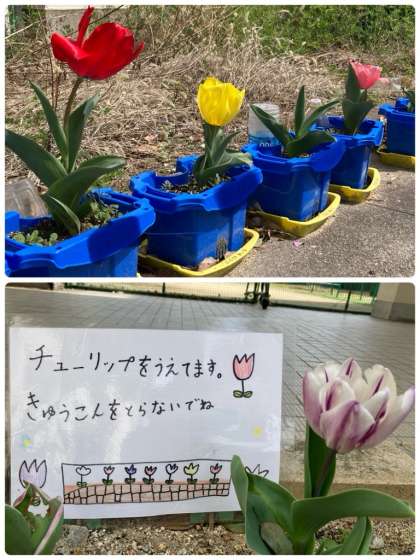 チューリップをうえてます。
きゅうこんをとらないでね